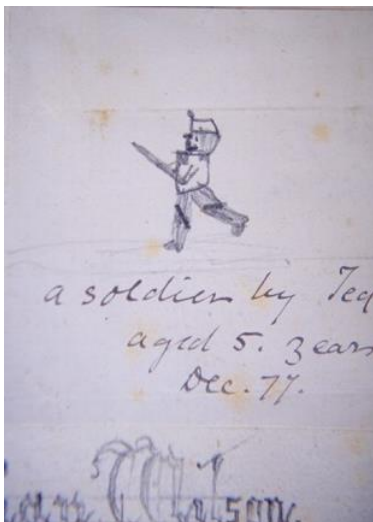 a soldier by Ted
aged 5. years
Dec. 77.
Watson